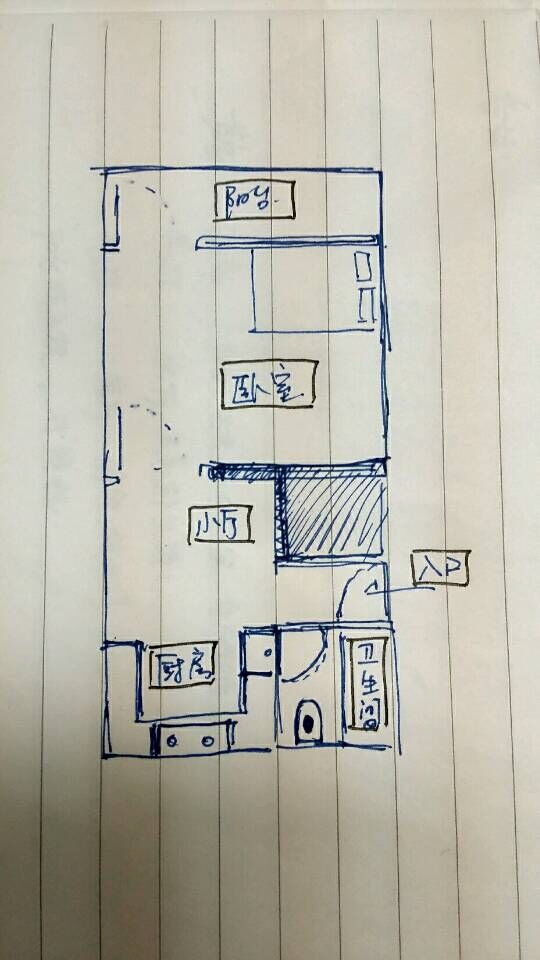 阳台
卧室
小厅
入户
厨房
卫生间